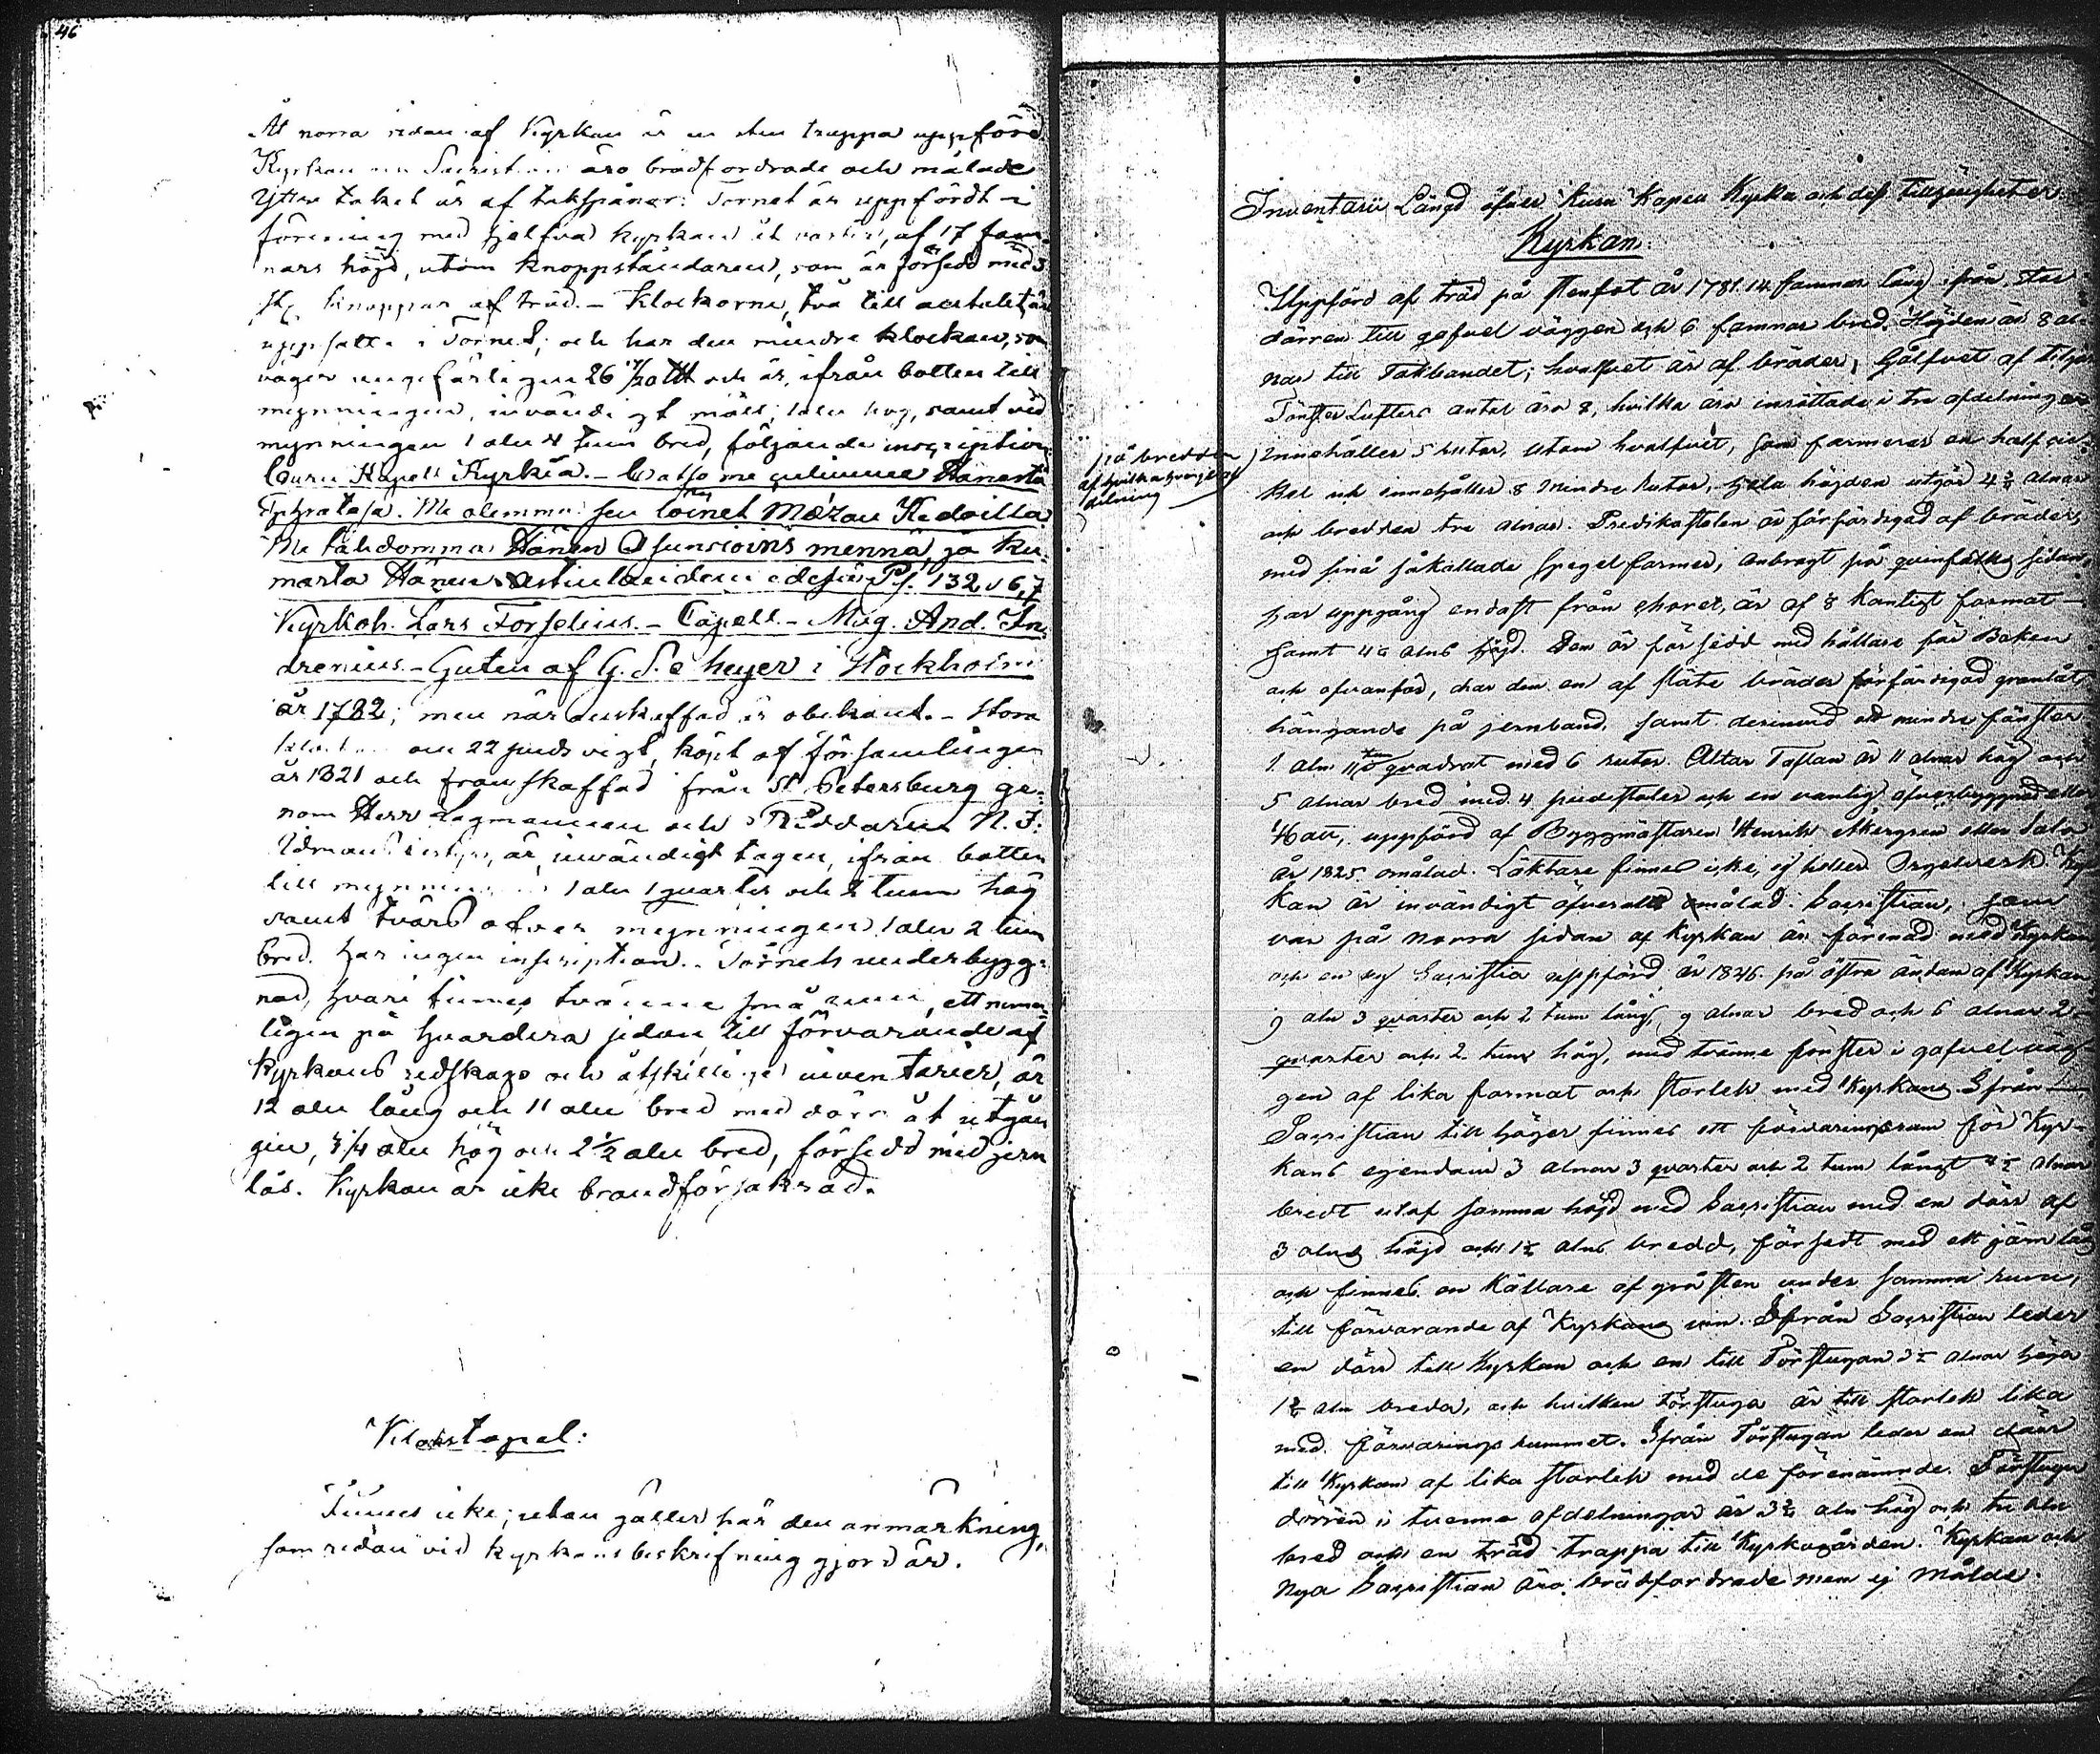 46
Åt norra sidan af Kyrkan är en sten trappa uppförd
Kyrkan och Sacristian äro brädfordrade och målade
Yttre taket är af takspånor. Tornet är uppfördt i
förening med sjelfva kyrkan åt vester, af 17 fam-
nars höjd, utom knoppständaren, som är försedd med 3
st. knoppar af träd. - Klockorne, två till antalet är
uppsatte i Tornet; och har den mindre klockan, som
väger ungefärligen 26 och är, ifrån botten till
mynningen, invändigt mätt, 1 aln hög, samt vid
mynningen 1 aln 4 tum bred, följande inscription:
Kapell Kyrkia. - Catso me culimme Hänestä
Ephratasa. Me olemma sen löinet Mezän Kedoilla
Me tahdomma Hänen Asunsioins mennä, ja ku-
marta Hänen astinlaudens edesä Ps. 132 v 6,7
Kyrkoh. Lars Forselius. - Capell. - Mag. And. In-
drenius. - Guten af G. S. c heyer i Stockholm
år 1782; men när anskaffad är obekant. - Stora
klockan om 22 puds vigt, köpt af församlingen
år 1821 och framskaffad från St Petersburg ge-
nom Herr Lagmannen och Riddaren N. J.
Idmans är, invändigt tagen, ifrån botten
till mynningen 1 aln 1 qvarter och 2 tum hög
samt tvärs öfver mynningen 1 aln 2 tum
bred. har ingen inscription. - Tornets underbygg-
nad, hvari finnes tvänne små rum, ett nem-
ligen på hvardera sidan, till förvarande af
Kyrkans redskap och åtskillige inventarier, är
12 aln lång och 11 aln bred med dörr åt utgån
gen, 3 3/4 aln hög och 2 1/2 aln bred, försedd med jern
lås. Kyrkan är icke brandförsäkrad.
Klockstapel:
Finnes icke; utan gäller här den anmärkning,
som redan vid kyrkans beskrifning gjord är.
Inventarii Längd öfver Kapell Kyrka och dess tillhörigheter.
Kyrkan.
Uppförd af träd på stenfot år 1781. 14 famnar lång ifrån stor
dörren till gafvel väggen och 6 famnar bred. Höjden är 8 al-
nar till Takbandet; hvalfvet är af bräder, Gålfvet af tilgor
Fönster Lufters antal äro 8, hvilka äro insättade i tre afdelningar
på bredden
af hvilka hvarje af-
delning
innehåller 5 rutor, utom hvalfvet, som formerar en half cir-
kel och innehåller 8 mindre rutor, hela höjden utgör 4 3/4 alnar
och bredden tre alnar. Predikostolen är förfärdigad af bräder,
med små såkallade spegel former, anbragt på qvinfolks sidan,
har uppgång endast från choret, är af 8 kantigt format
samt 4 alns höjd. Den är försedd med hållare för Boken
och ofvanför, har den en af släte bräder förfärdigad granlåt
hängande på jernband, samt derinvid ett mindre fönster
1. aln 11 tum qvadrat med 6 rutor. Altar Taflan är 11 alnar hög och
5 alnar bred med 4 piedestaler och en vanlig öfverbyggnad eller
Hatt, uppförd af Byggmästaren Henrik Åkergren eller Salo
år 1825. omålad. Läktare finnes icke, ej heller Orgelverk. Kyr-
kan är invändigt öfverallt omålad. Sacristian, som
var på norra sidan af Kyrkan är förenad med Kyrkan
och en ny Sacristia uppförd år 1846. på östra ändan af Kyrkan
9 aln 3 qvarter och 2 tum lång, 9 alnar bred och 6 alnar 2
qvarter och 2 tum hög, med tvänne fönster i gafvel väg-
gen af lika format och storlek med Kyrkans. Ifrån
Sacristian till höger finnes ett förvaringsrum för Kyr-
kans egendom 3 alnar 3 qvarter och 2 tum långt 4 1/2 alnar
bredt utaf samma höjd med Sacristian med en dörr af
3 alns höjd och 1 1/2 alns bredd, försedt med ett järn lås
och finnes en Källare af gråsten under samma rum,
till förvarande af Kyrkans vin. Ifrån Sacristian leder
en dörr till Kyrkan och en till Förstugan 3 1/2 alnar höga
1 3/4 aln breda, och hvilken Förstuga är till storlek lika
med förvarings rummet. Ifrån Förstugan leder en dörr
till Kyrkan af lika storlek med de förenämnde. Förstugu
dörren i tvenne afdelningar är 3 3/4 aln hög och tre aln
bred och en träd trappa till Kyrkogården. Kyrkan och
Nya Sacristian äro brädfordrade men ej målde.